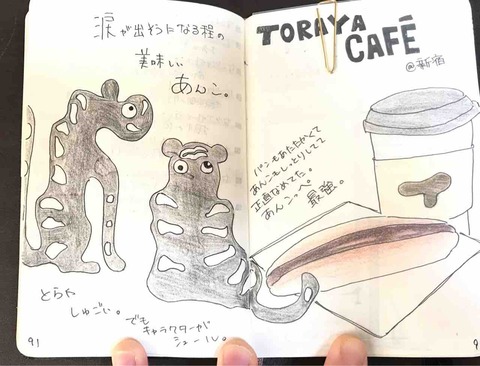 涙が出そうになる程の
美味しい
あんこ。
とらや
しゅごい。
でも
キャラクターが
シュール。
91
TORAYA
CAFÉ
@新宿
パンもあたたかくて
あんこもしっとりしてて
正直なめてた。
あんこパン。
最強。
9